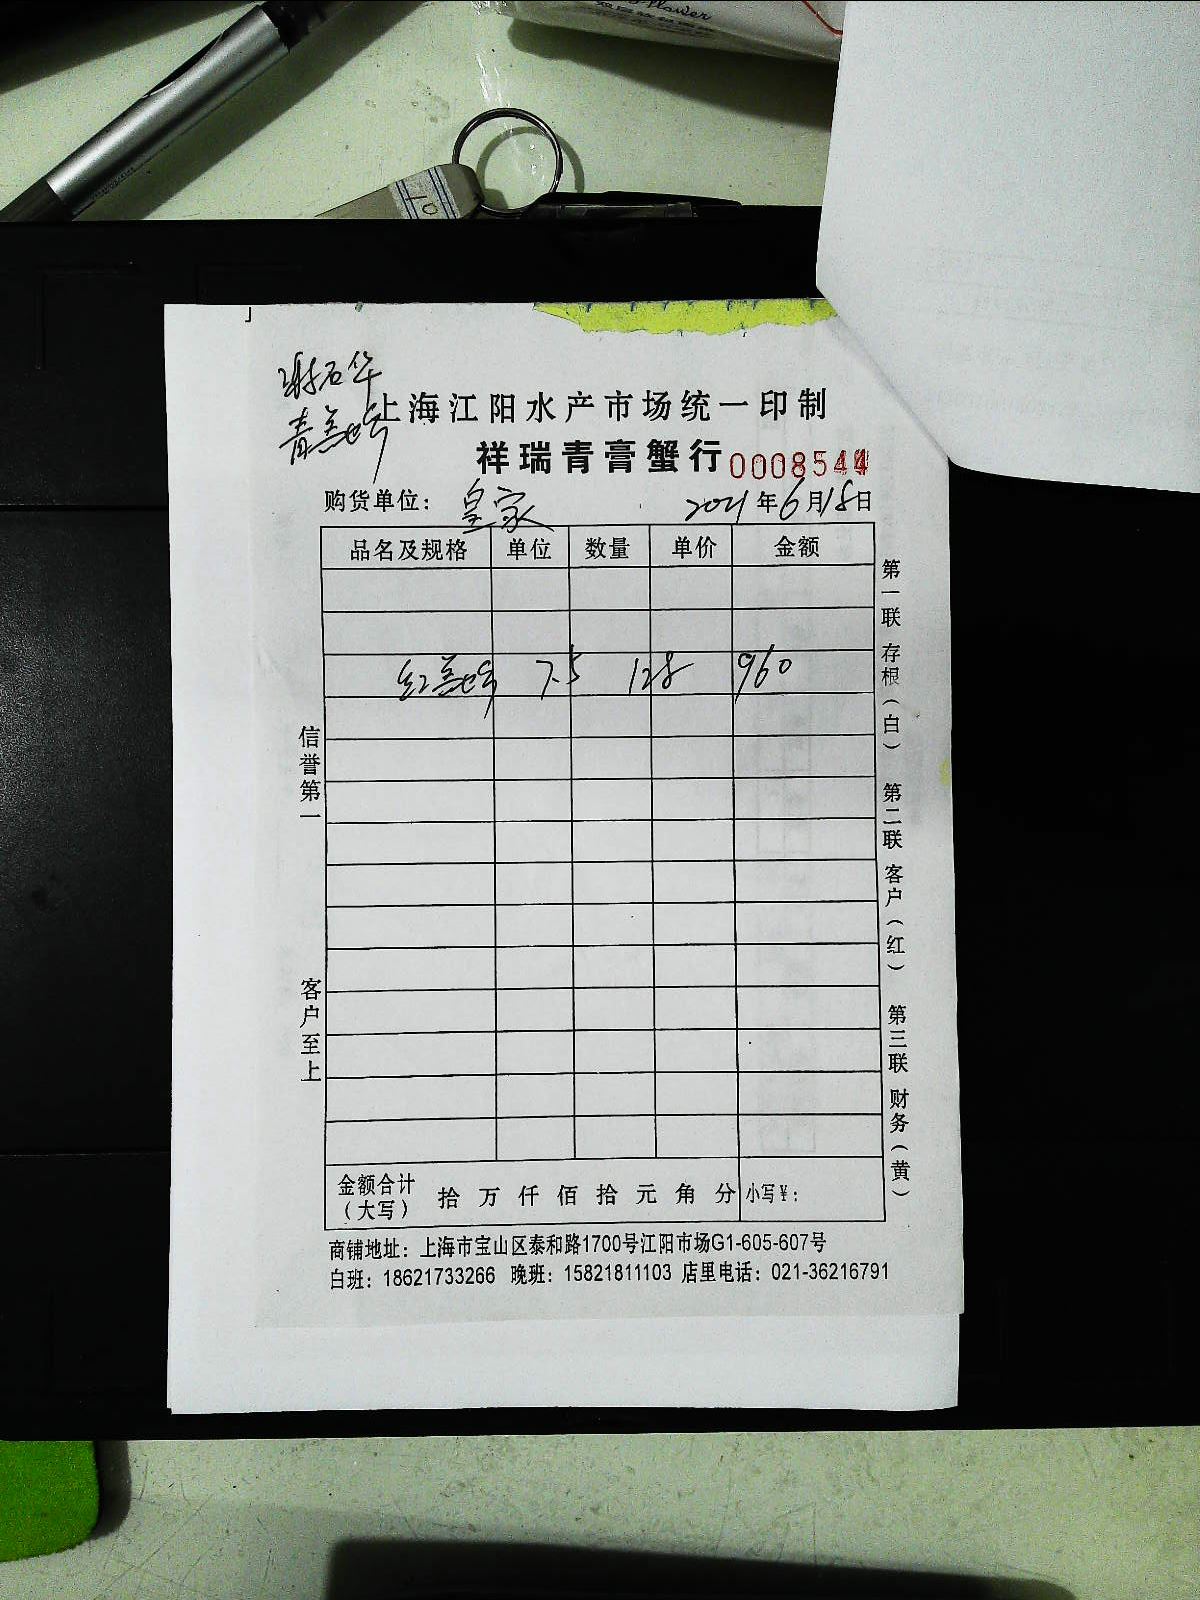 flower
谢石华
上海江阳水产市场统一印制
祥瑞青膏蟹行 0008544
购货单位： 皇家 2021年6月18日
品名及规格 单位 数量 单价 金额
7.5 128 960
信誉第一
客户至上
第一联 存根（白） 第二联 客户（红） 第三联 财务（黄）
金额合计（大写） 拾 万 仟 佰 拾 元 角 分 小写￥：
商铺地址：上海市宝山区泰和路1700号江阳市场G1-605-607号
白班：18621733266 晚班：15821811103 店里电话：021-36216791